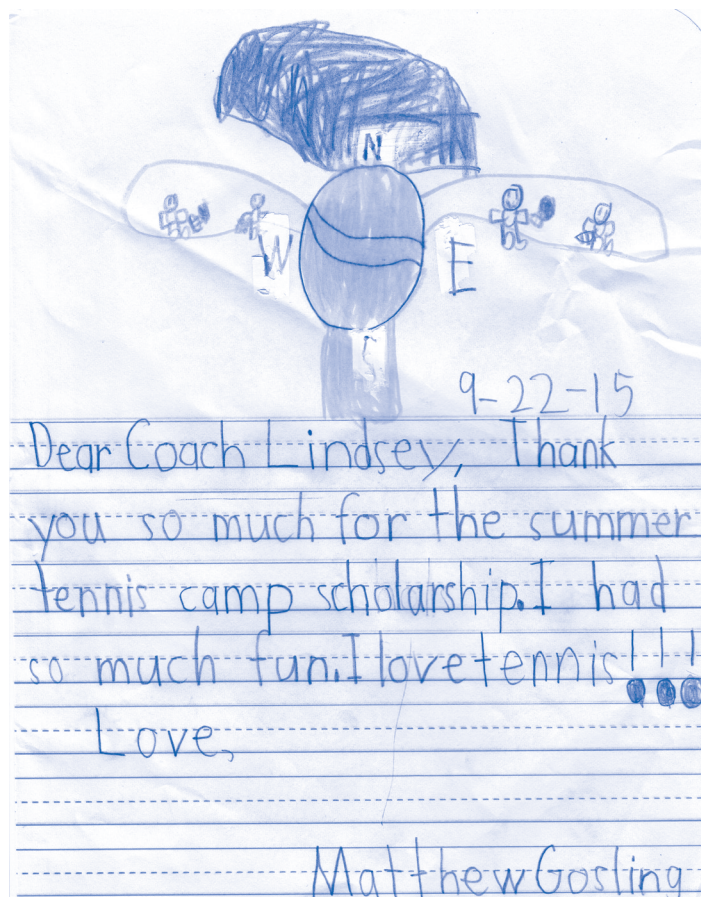 N
W
E
9-22-15
Dear Coach Lindsey, Thank
you so much for the summer
tennis camp scholarship. I had
so much fun. I love tennis!!!
Love,
Matthew Gosling